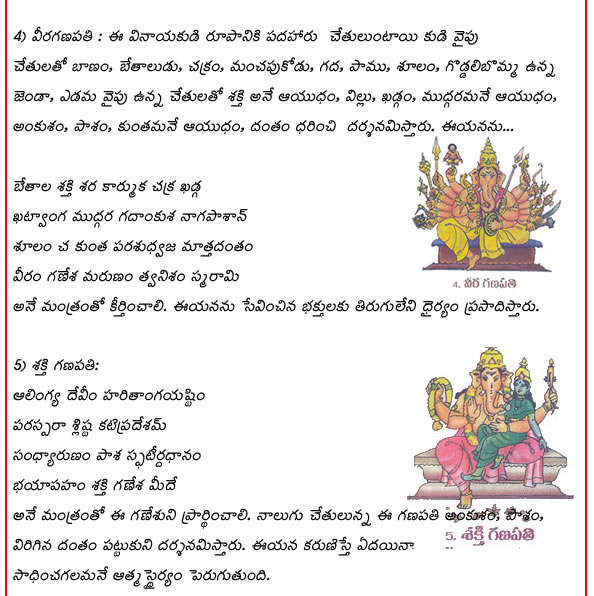 4) వీరగణపతి : ఈ వినాయకుడి రూపానికి పదహారు చేతులుంటాయి కుడి వైపు
చేతులతో బాణం, బేతాలుడు, చక్రం, మంచపుకోడు, గద, పాము, శూలం, గొడ్డలిబొమ్మ ఉన్న
జెండా, ఎడమ వైపు ఉన్న చేతులతో శక్తి అనే ఆయుధం, విల్లు, ఖడ్గం, ముద్గరమనే ఆయుధం,
అంకుశం, పాశం, కుంతమనే ఆయుధం, దంతం ధరించి దర్శనమిస్తారు. ఈయనను...
బేతాల శక్తి శర కార్ముక చక్ర ఖడ్గ
ఖట్వాంగ ముద్గర గదాంకుశ నాగపాశాన్
శూలం చ కుంత పరశుధ్వజ మాత్తదంతం
వీరం గణేశ మరుణం త్వనిశం స్మరామి
4. వీర గణపతి
అనే మంత్రంతో కీర్తించాలి. ఈయనను సేవించిన భక్తులకు తిరుగులేని ధైర్యం ప్రసాదిస్తారు.
5) శక్తి గణపతి:
ఆలింగ్య దేవీం హరితాంగయష్టిం
పరస్పరా శ్లిష్ట కటిప్రదేశమ్
సంధ్యారుణం పాశ స్ఫటీర్దధానం
భయాపహం శక్తి గణేశ మీదే
అనే మంత్రంతో ఈ గణేశుని ప్రార్థించాలి. నాలుగు చేతులున్న ఈ గణపతి అంకుశం, పాశం,
5. శక్తి గణపతి
విరిగిన దంతం పట్టుకుని దర్శనమిస్తారు. ఈయన కరుణిస్తే ఏదయినా
సాధించగలమనే ఆత్మస్థైర్యం పెరుగుతుంది.